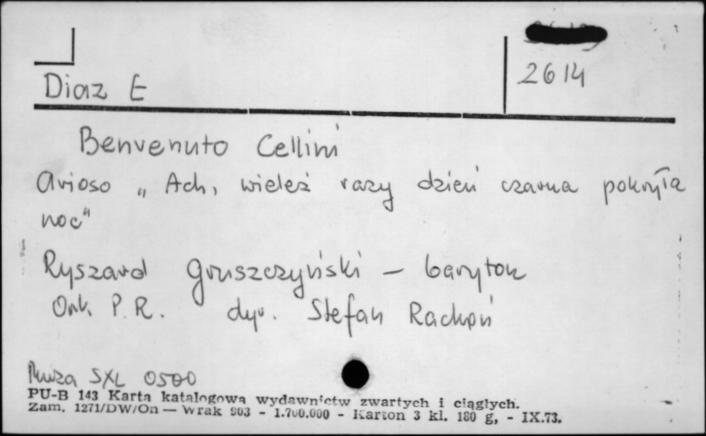 Diaz E
2614
Benvenuto Cellini
Arioso „ Ach, wieleż razy dzień czarna pokryła
noc"
Ryszard Gruszczyński – baryton
Ork. P.R. dyr. Stefan Rachoń
Muza SXL 0500
PU-B 143 Karta katalogowa wydawnictw zwartych i ciągłych.
Zam. 1271/DW/On — Wrak 903 - 1.700.000 - Karton 3 kl. 180 g, - IX.73.